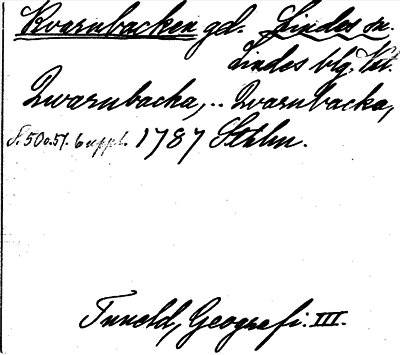 Kvarnbacken gd. Lindes sn.
Lindes blg, Vstl.
Qvarnbacka, .. Qvarnbacka,
s. 50 o. 51. 6 uppl. 1787 Sthlm.
Tuneld, Geografi. III.